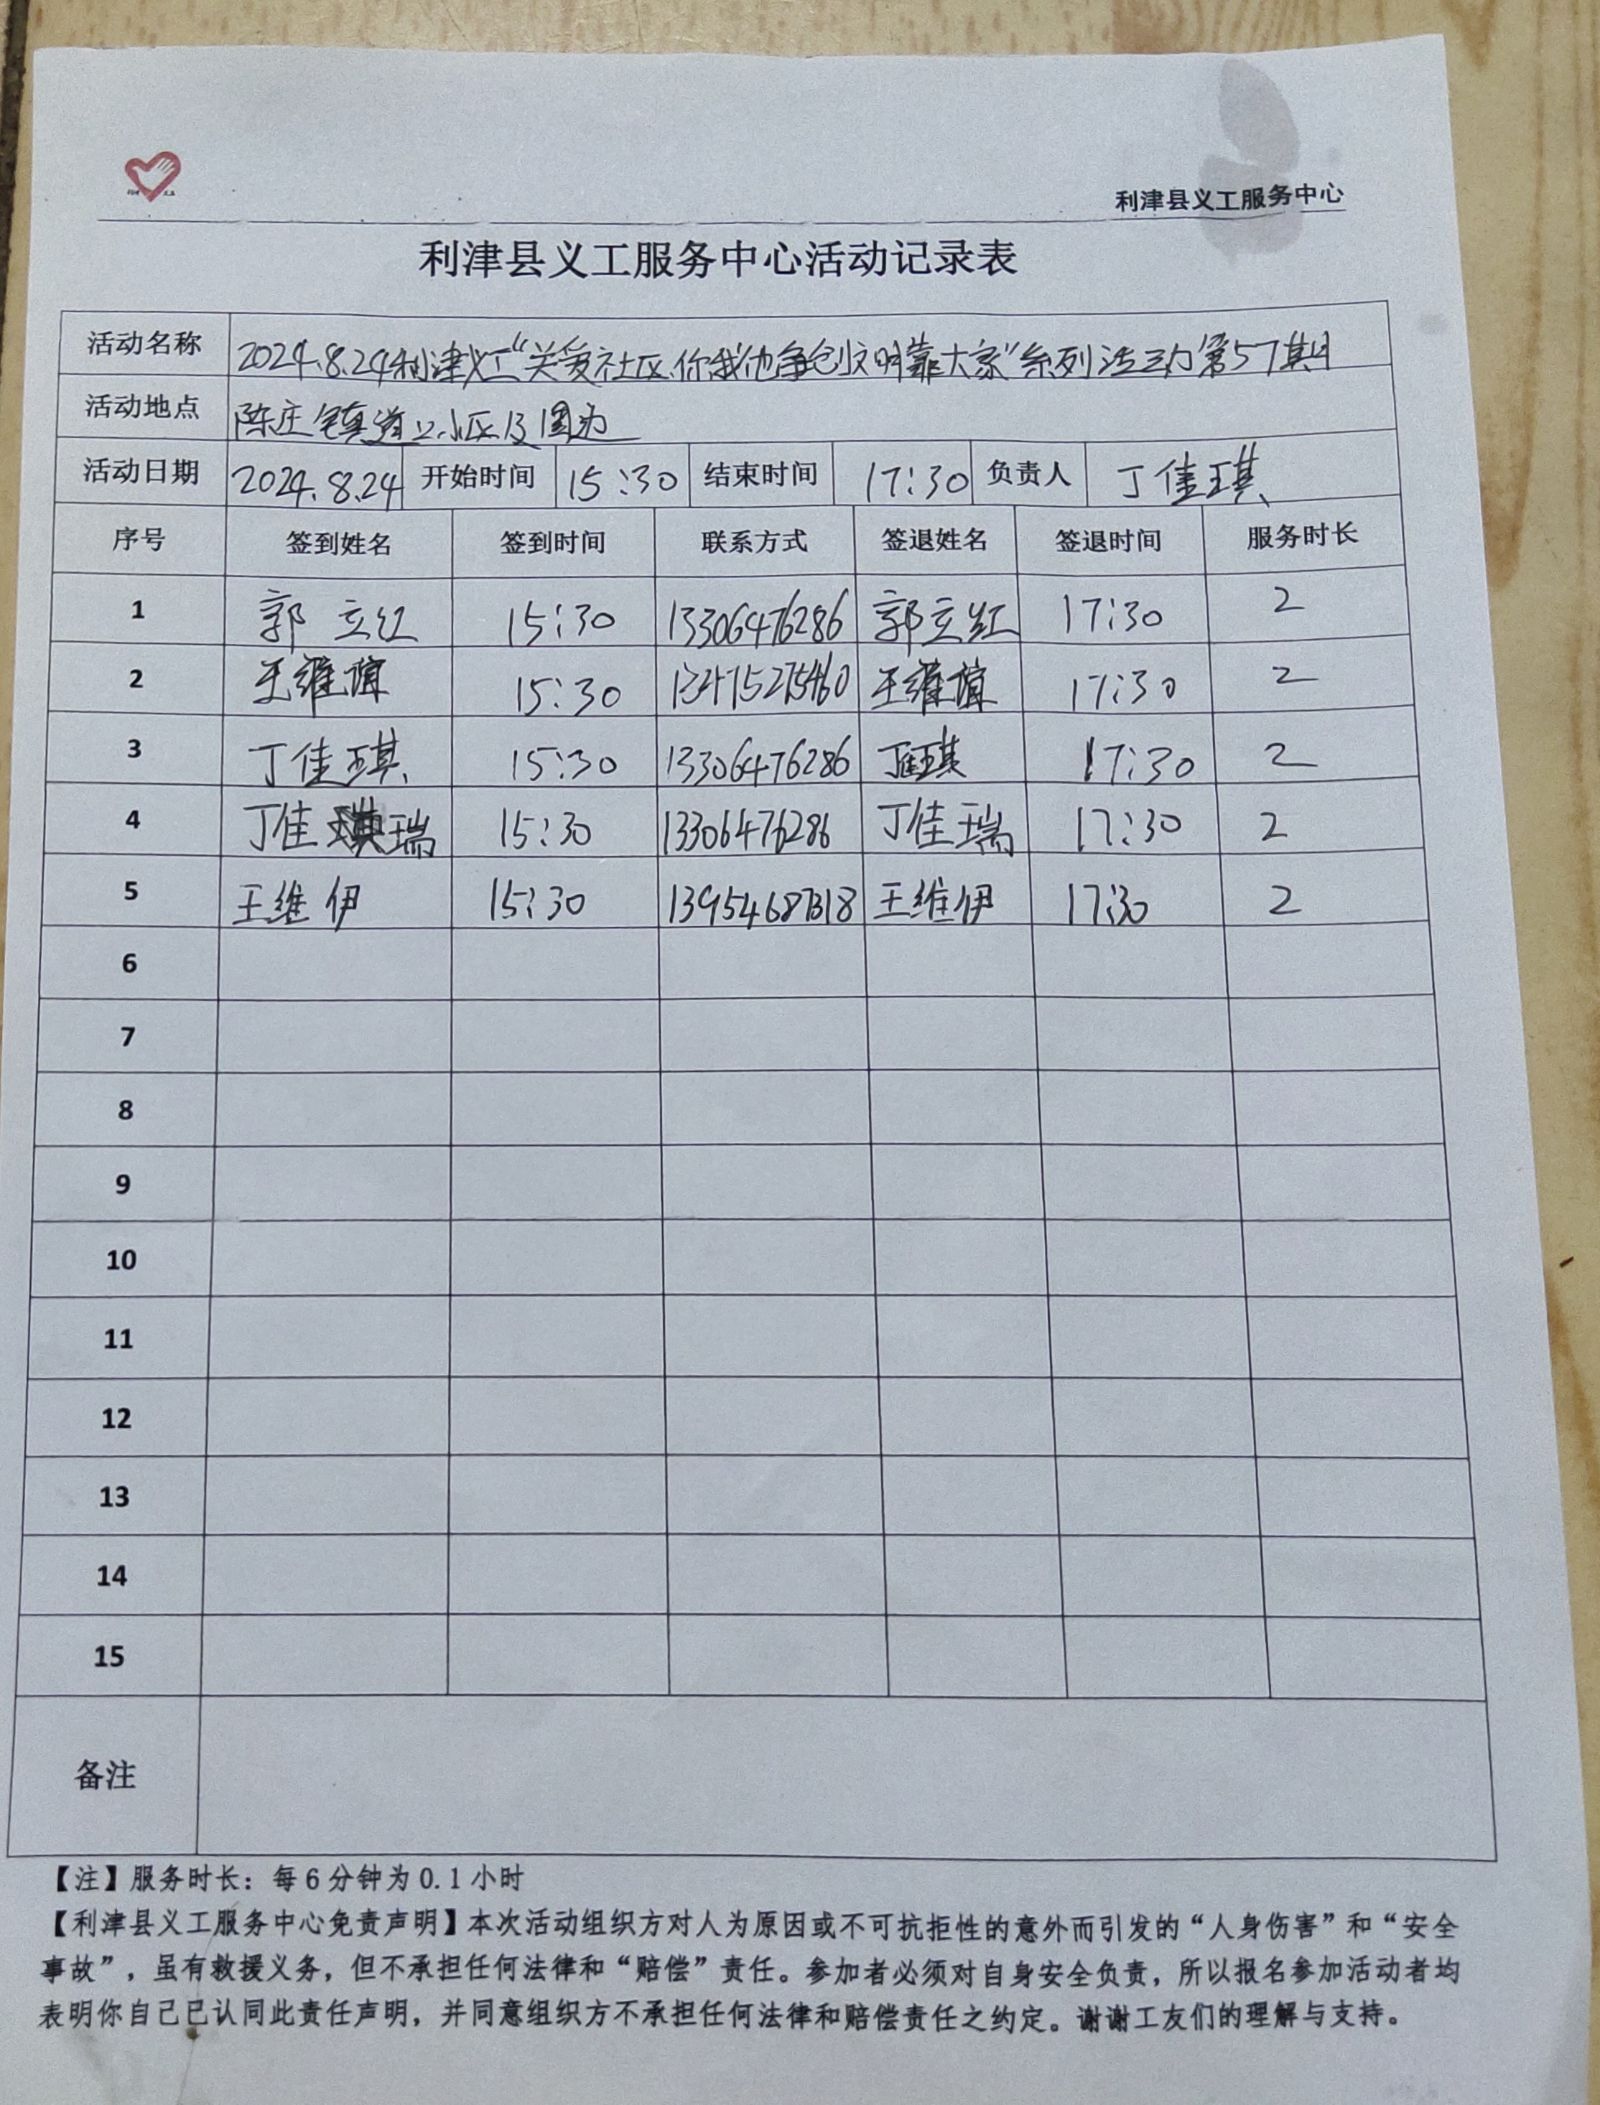 利津县义工服务中心
利津县义工服务中心活动记录表
活动名称 2024.8.24利津义工“关爱社区,你我他争创文明靠大家”系列活动第57期
活动地点 陈庄镇 小区及周边
活动日期 2024.8.24 开始时间 15:30 结束时间 17:30 负责人 丁佳琪
序号 签到姓名 签到时间 联系方式 签退姓名 签退时间 服务时长
1 郭立红 15:30 13306476286 郭立红 17:30 2
2 王维谊 15:30 13475275460 王维谊 17:30 2
3 丁佳琪 15:30 13306476286 丁佳琪 17:30 2
4 丁佳瑞 15:30 13306476286 丁佳瑞 17:30 2
5 王维伊 15:30 13954687318 王维伊 17:30 2
6
7
8
9
10
11
12
13
14
15
备注
【注】服务时长：每6分钟为0.1小时
【利津县义工服务中心免责声明】本次活动组织方对人为原因或不可抗拒性的意外而引发的“人身伤害”和“安全
事故”，虽有救援义务，但不承担任何法律和“赔偿”责任。参加者必须对自身安全负责，所以报名参加活动者均
表明你自己已认同此责任声明，并同意组织方不承担任何法律和赔偿责任之约定。谢谢工友们的理解与支持。